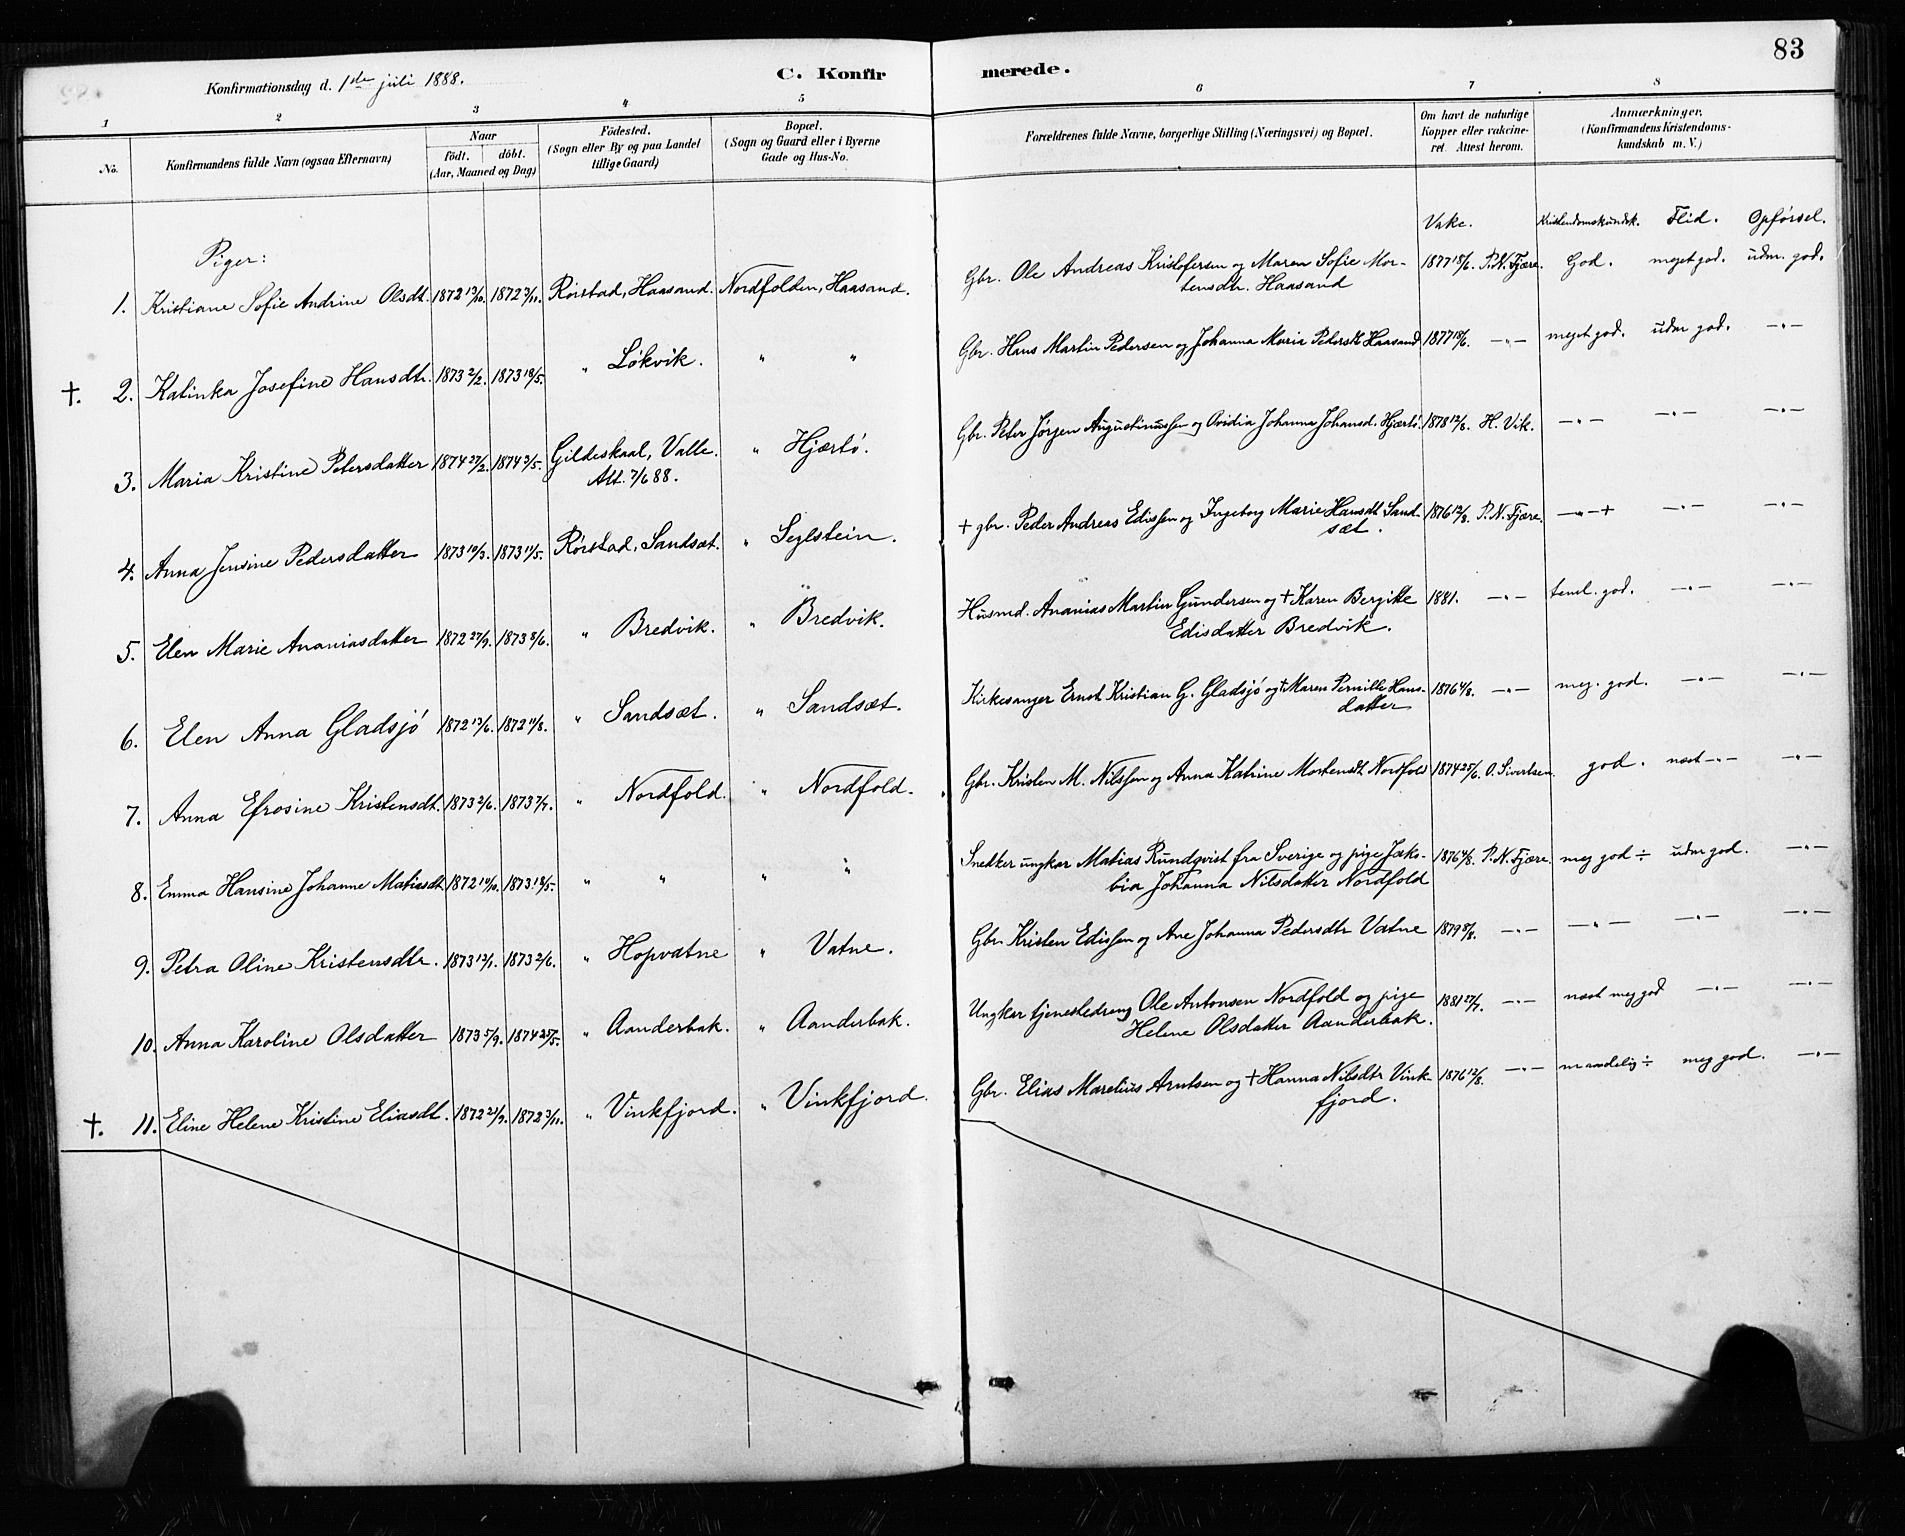 83
Konfirmationsdag d. 1ste juli 1888. C. Konfirmerede.
1 2 3 4 5 6 7 8
No. Konfirmandens fulde Navn (ogsaa Efternavn) Naar födt. döbt. (Aar, Maaned og Dag) Födested. (Sogn eller By og paa Landet tillige Gaard) Bopæl. (Sogn og Gaard eller i Byerne Gade og Hus-No. Forældrenes fulde Navne, borgerlige Stilling (Næringsvei) og Bopæl. Om havt de naturlige Kopper eller vakcineret. Attest herom. Anmærkninger. (Konfirmandens Kristendomskundskab m. V.)
Vakc. Kristendomskundsk. Flid. Opförsel.
Piger:
1. Kristiane Sofie Andrine Olsdt. 1872 13/10. 1872 3/11. Rörstad, Haasand. Nordfolden, Haasand. Gbr. Ole Andreas Kristofersen og Maren Sofie Mor- 1877 18/6. P.N. Fjære. God. meget god. udm. god.
tensdtr. Haasand
†. 2. Katinka Josefine Hansdtr. 1873 2/2. 1873 18/5. " Lökvik. " " Gbr. Hans Martin Pedersen og Johanna Maria Pedersdtr Haasand 1877 18/6. —"— meget god. udm god. —"—
3. Maria Kristine Petersdatter 1874 27/2. 1874 3/5. Gildeskaal, Valle. " Hjærtö. Gbr. Peter Jörgen Augustinussen og Ovidia Johanna Johansd. Hjærtö. 1878 12/8. H. Vik. —"— —"— —"—
Att. 7/6 88.
4. Anna Jensine Pedersdatter 1873 10/3. 1873 11/5. Rörstad, Sandsæt. " Seglstein. + gbr. Peder Andreas Edissen og Ingeborg Marie Hansdt Sand- 1876 12/8. P.N. Fjære. —"—+ —"— —"—
sæt.
5. Elen Marie Ananiasdatter 1872 27/9. 1873 8/6. " Bredvik. " Bredvik. Husmd. Ananias Martin Gundersen og + Karen Bergitte 1881. —"— teml. god. —"— —"—
Edisdatter Bredvik.
6. Elen Anna Gladsjö 1872 13/6. 1872 11/8. " Sandsæt. " Sandsæt. Kirkesanger Ernst Kristian G. Gladsjö og + Maren Pernille Hans- 1876 4/8. —"— meg. god. —"— —"—
datter
7. Anna Efrosine Kristensdt. 1873 2/6. 1873 7/7. " Nordfold. " Nordfold. Gbr. Kristen M. Nilssen og Anna Katrine Mortensdt Nordfold 1874 25/6. O. Sivertsen. god. næst —"— —"—
8. Emma Hansine Johanne Matiasdt 1872 14/10. 1873 18/5. " " " " Snedker ungkar Matias Rundqvist fra Sverige og pige Jako- 1876 4/8. P.N. Fjære. meg god ÷ udm god. —"—
bia Johanna Nilsdatter Nordfold
9. Petra Oline Kristensdtr. 1873 12/1. 1873 2/6. " Hopvatne " Vatne. Gbr. Kristen Edissen og Ane Johanna Pedersdtr Vatne 1879 8/8. —"— —"— —"— —"—
10. Anna Karoline Olsdatter 1873 5/9. 1874 25/5. " Aanderbak. " Aanderbak. Ungkar tjenestedreng Ole Antonsen Nordfold og pige 1881 27/7. —"— næst meg god —"— —"—
Helene Olsdatter Aanderbak.
†. 11. Eline Helene Kristine Eliasdt. 1872 21/9. 1872 3/11. " Vinkfjord. " Vinkfjord. Gbr. Elias Marelius Arntsen og + Hanna Nilsdtr Vink- 1876 12/8. —"— maadelig ÷ meg god. —"—
fjord.